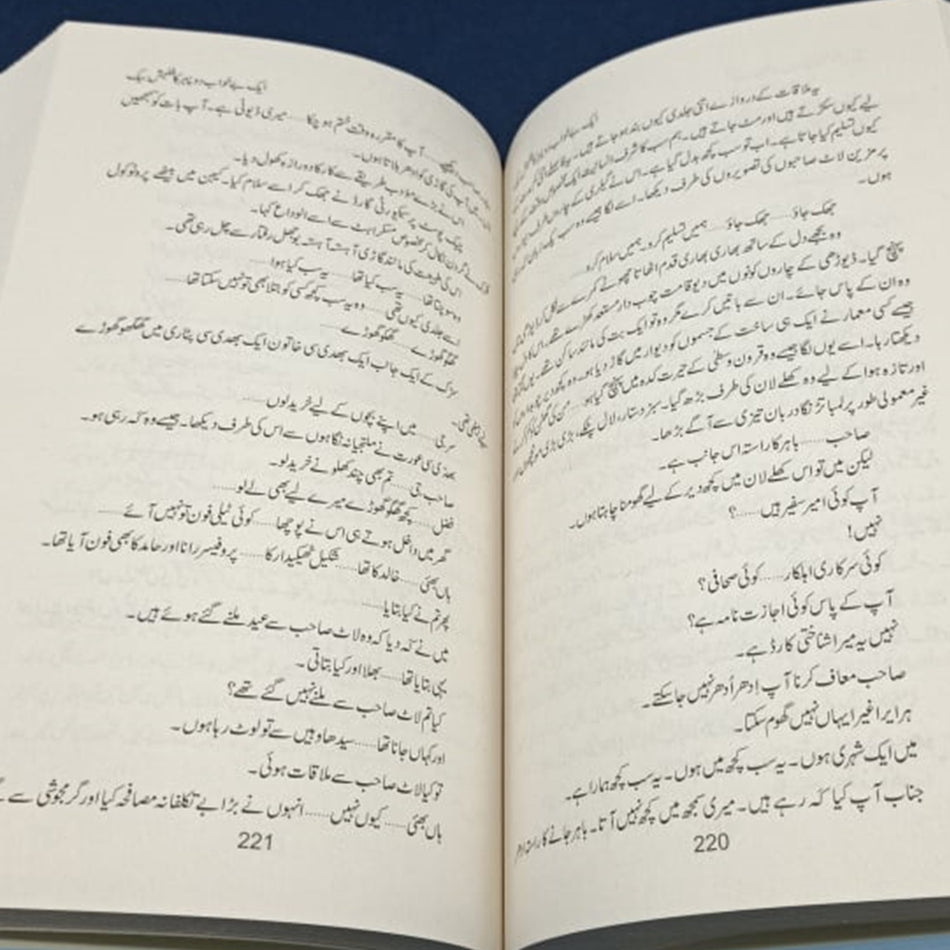 ایک بے خواب دوپہر
یہ ملاقات کے دروازے اتنی جلدی کیوں بند ہو جاتے ہیں۔
لیے کیوں سکڑتے ہیں اور مٹ جاتے ہیں۔ ہم سب کا شرف انسانیت ایک
کیوں تسلیم کیا جاتا ہے۔ اب تو سب کچھ بدل گیا ہے۔ اس نے گیلری کے چاروں طرف
پر مزین لاٹ صاحبوں کی تصویروں کی طرف دیکھا۔ اسے لگا جیسے وہ سب یک زبان
ہوں۔
جھک جاؤ...... جھک جاؤ...... ہمیں تسلیم کرو۔ ہمیں سلام کرو......
وہ بجھے دل کے ساتھ بھاری بھاری قدم اٹھاتا چھوٹے کمرے سے نکل کر ڈیوڑھی میں
پہنچ گیا۔ ڈیوڑھی کے چاروں کونوں میں دیو قامت چوب دار مستعد کھڑے تھے۔ اس کا
وہ ان کے پاس جائے۔ ان سے باتیں کرے مگر وہ تو ایک بت کی مانند ساکن تھے۔ یوں
جیسے کسی معمار نے ایک ہی ساخت کے مجسموں کو دیوار میں گاڑ دیا ہو۔ وہ کچھ دیر
دیکھتا رہا۔ اسے یوں لگا جیسے وہ قرون وسطیٰ کے حیرت کدہ میں پہنچ گیا ہو...... من کی گھٹن
اور تازہ ہوا کے لیے وہ کھلے لان کی طرف بڑھ گیا۔ سبز دستار، لال پٹکے، بڑی بڑی مونچھوں
غیر معمولی طور پر لمبا تڑنگا دربان تیزی سے آگے بڑھا۔
صاحب...... باہر کا راستہ اس جانب ہے۔
لیکن میں تو اس کھلے لان میں کچھ دیر کے لیے گھومنا چاہتا ہوں۔
آپ کوئی امیر سفیر ہیں......؟
نہیں!
کوئی سرکاری اہلکار...... کوئی صحافی؟
آپ کے پاس کوئی اجازت نامہ ہے؟
نہیں یہ میرا شناختی کارڈ ہے۔
صاحب معاف کرنا آپ ادھر اُدھر نہیں جا سکتے۔
ہر ایرا غیرا یہاں نہیں گھوم سکتا۔
میں ایک شہری ہوں۔ یہ سب کچھ میں ہوں۔ یہ سب کچھ ہمارا ہے۔
جناب آپ کیا کہہ رہے ہیں۔ میری سمجھ میں کچھ نہیں آتا۔ باہر جانے کا راستہ
220
ایک بے خواب دوپہر کا
آپ کا مقررہ وقت ختم ہو چکا...... میری ڈیوٹی ہے۔ آپ بات کو سمجھیں
آپ کی گاڑی کو ادھر بلاتا ہوں۔
اس نے بڑے مؤدب طریقے سے کار کا دروازہ کھول دیا۔
چیک پوسٹ پر سیکیورٹی گارڈ نے جھک کر اسے سلام کیا۔ کیبن میں بیٹھے پروٹوکول
نے گردن نکال کر مخصوص مسکراہٹ سے اسے الوداع کہا۔
اس کی طبیعت کی مانند گاڑی آہستہ آہستہ بوجھل رفتار سے چل رہی تھی۔
وہ سوچتا تھا...... یہ سب کیا تھا...... یہ سب کیا ہوا......
اسے جلدی کیوں تھی...... وہ یہ سب کچھ کسی کو بتلا بھی تو نہیں سکتا تھا......
گھگھو گھوڑے...... گھگھو گھوڑے......
سڑک کے ایک جانب ایک بھدی سی خاتون ایک بھدی سی پٹاری میں گھگھو گھوڑے
کر بی...... میں اپنے بچوں کے لیے خرید لوں......
بھدی سی عورت نے ملتجیانہ نگاہوں سے اس کی طرف دیکھا۔ جیسے وہ کہہ رہی ہو۔
صاحب جی...... تم بھی چند کھلونے خرید لو۔
فضل...... کچھ گھگھو گھوڑے میرے لیے بھی لے لو......
گھر میں داخل ہوتے ہی اس نے پوچھا...... کوئی ٹیلی فون تو نہیں آئے......
ہاں بھئی...... خالد کا تھا...... شکیل ٹھیکیدار کا...... پروفیسر رانا اور حامد کا بھی فون آیا تھا۔
پھر تم نے کیا بتایا......
میں نے کہہ دیا کہ وہ لاٹ صاحب سے عید ملنے گئے ہوئے ہیں۔
یہی بتایا تھا...... بھلا اور کیا بتاتی۔
کیا تم لاٹ صاحب سے ملنے نہیں گئے تھے؟
اور کہاں جانا تھا...... سیدھا وہیں سے تو لوٹ رہا ہوں۔
تو کیا لاٹ صاحب سے ملاقات ہوئی۔
ہاں بھئی...... کیوں نہیں...... انہوں نے بڑا بے تکلفانہ مصافحہ کیا اور گرمجوشی سے
221